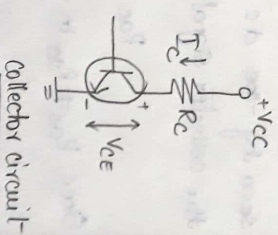 +VCC
IC↓
RC
+
VCE
-
Collector circuit-